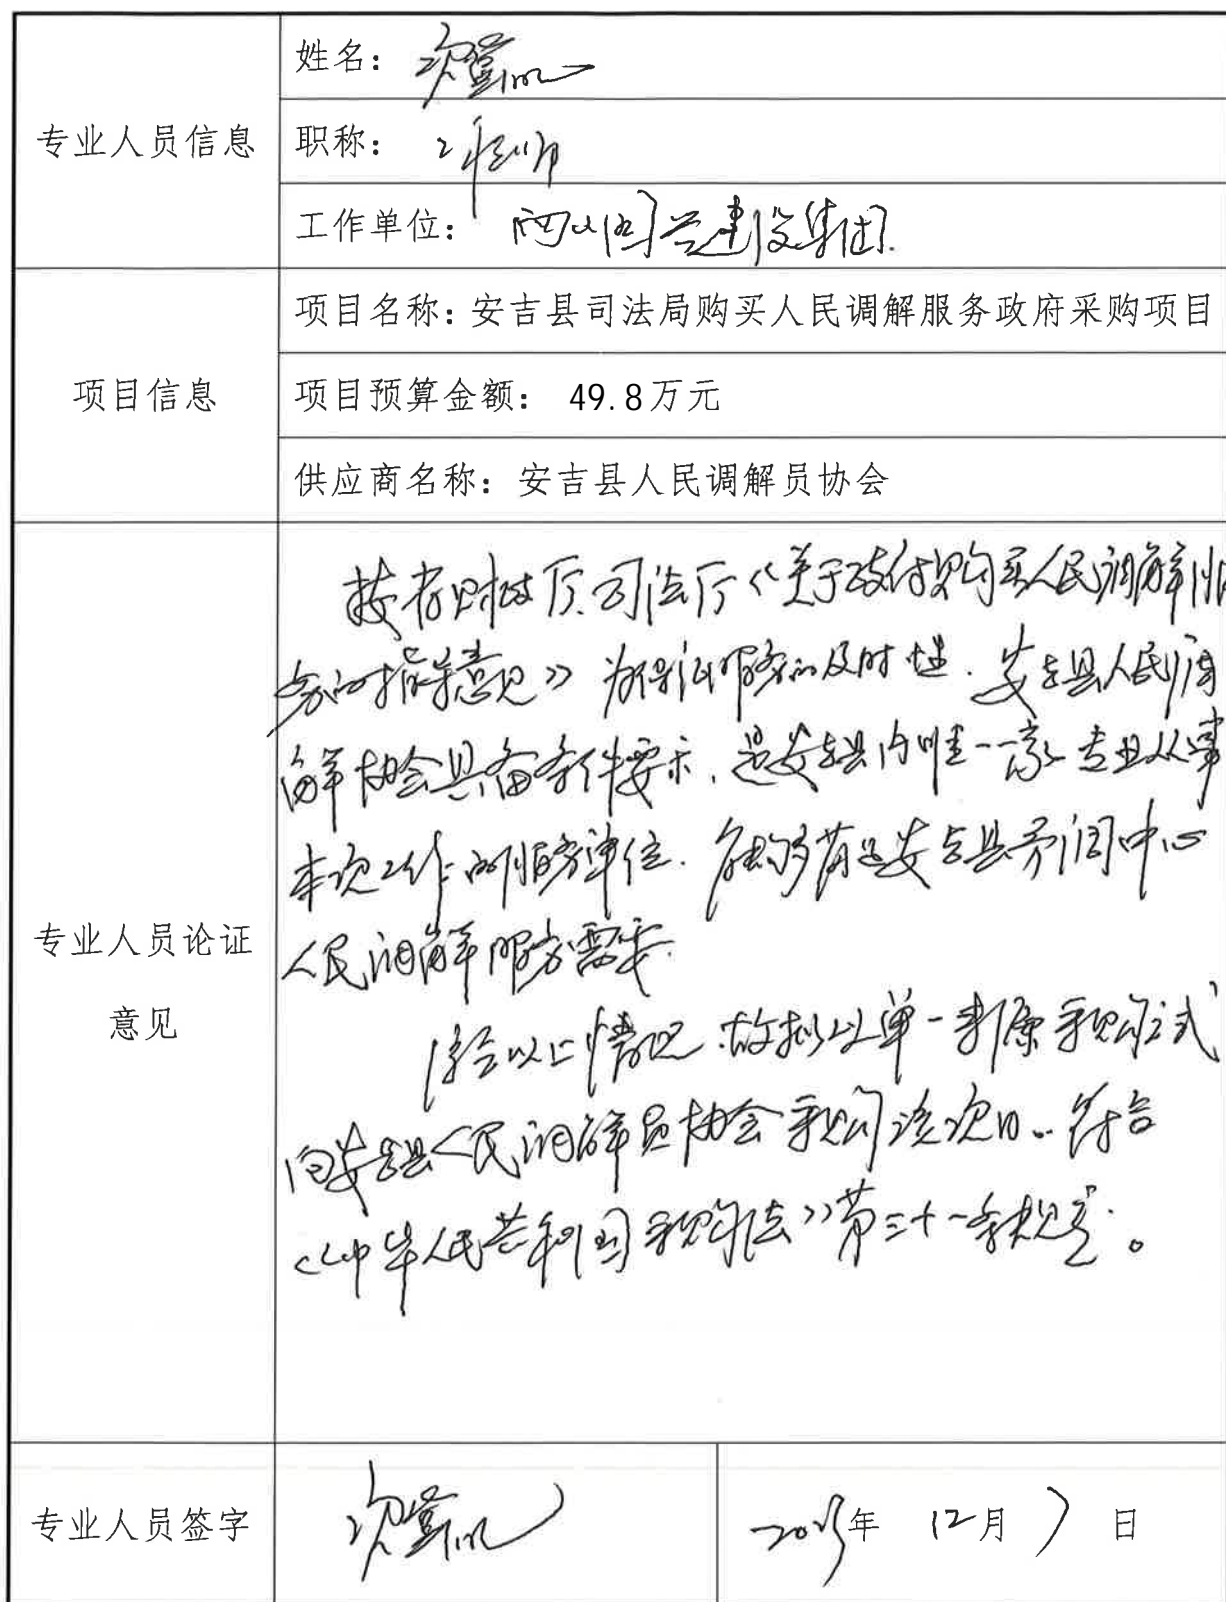 专业人员信息
姓名：
职称：工程师
工作单位：建设集团.
项目信息
项目名称：安吉县司法局购买人民调解服务政府采购项目
项目预算金额： 49.8万元
供应商名称：安吉县人民调解员协会
专业人员论证
意见
按省财政厅、司法厅《关于政府购买人民调解服
务的指导意见》为保证服务的及时性．安吉县人民调
解协会具备条件要求，是安吉县内唯一一家专业从事
本次工作的服务单位．能够满足安吉县矛调中心
人民调解服务需要．
综合以上情况．故拟以单一来源采购方式
向安吉县人民调解员协会采购该项目．符合
《中华人民共和国采购法》第三十一条规定。
专业人员签字
年 12月 7 日